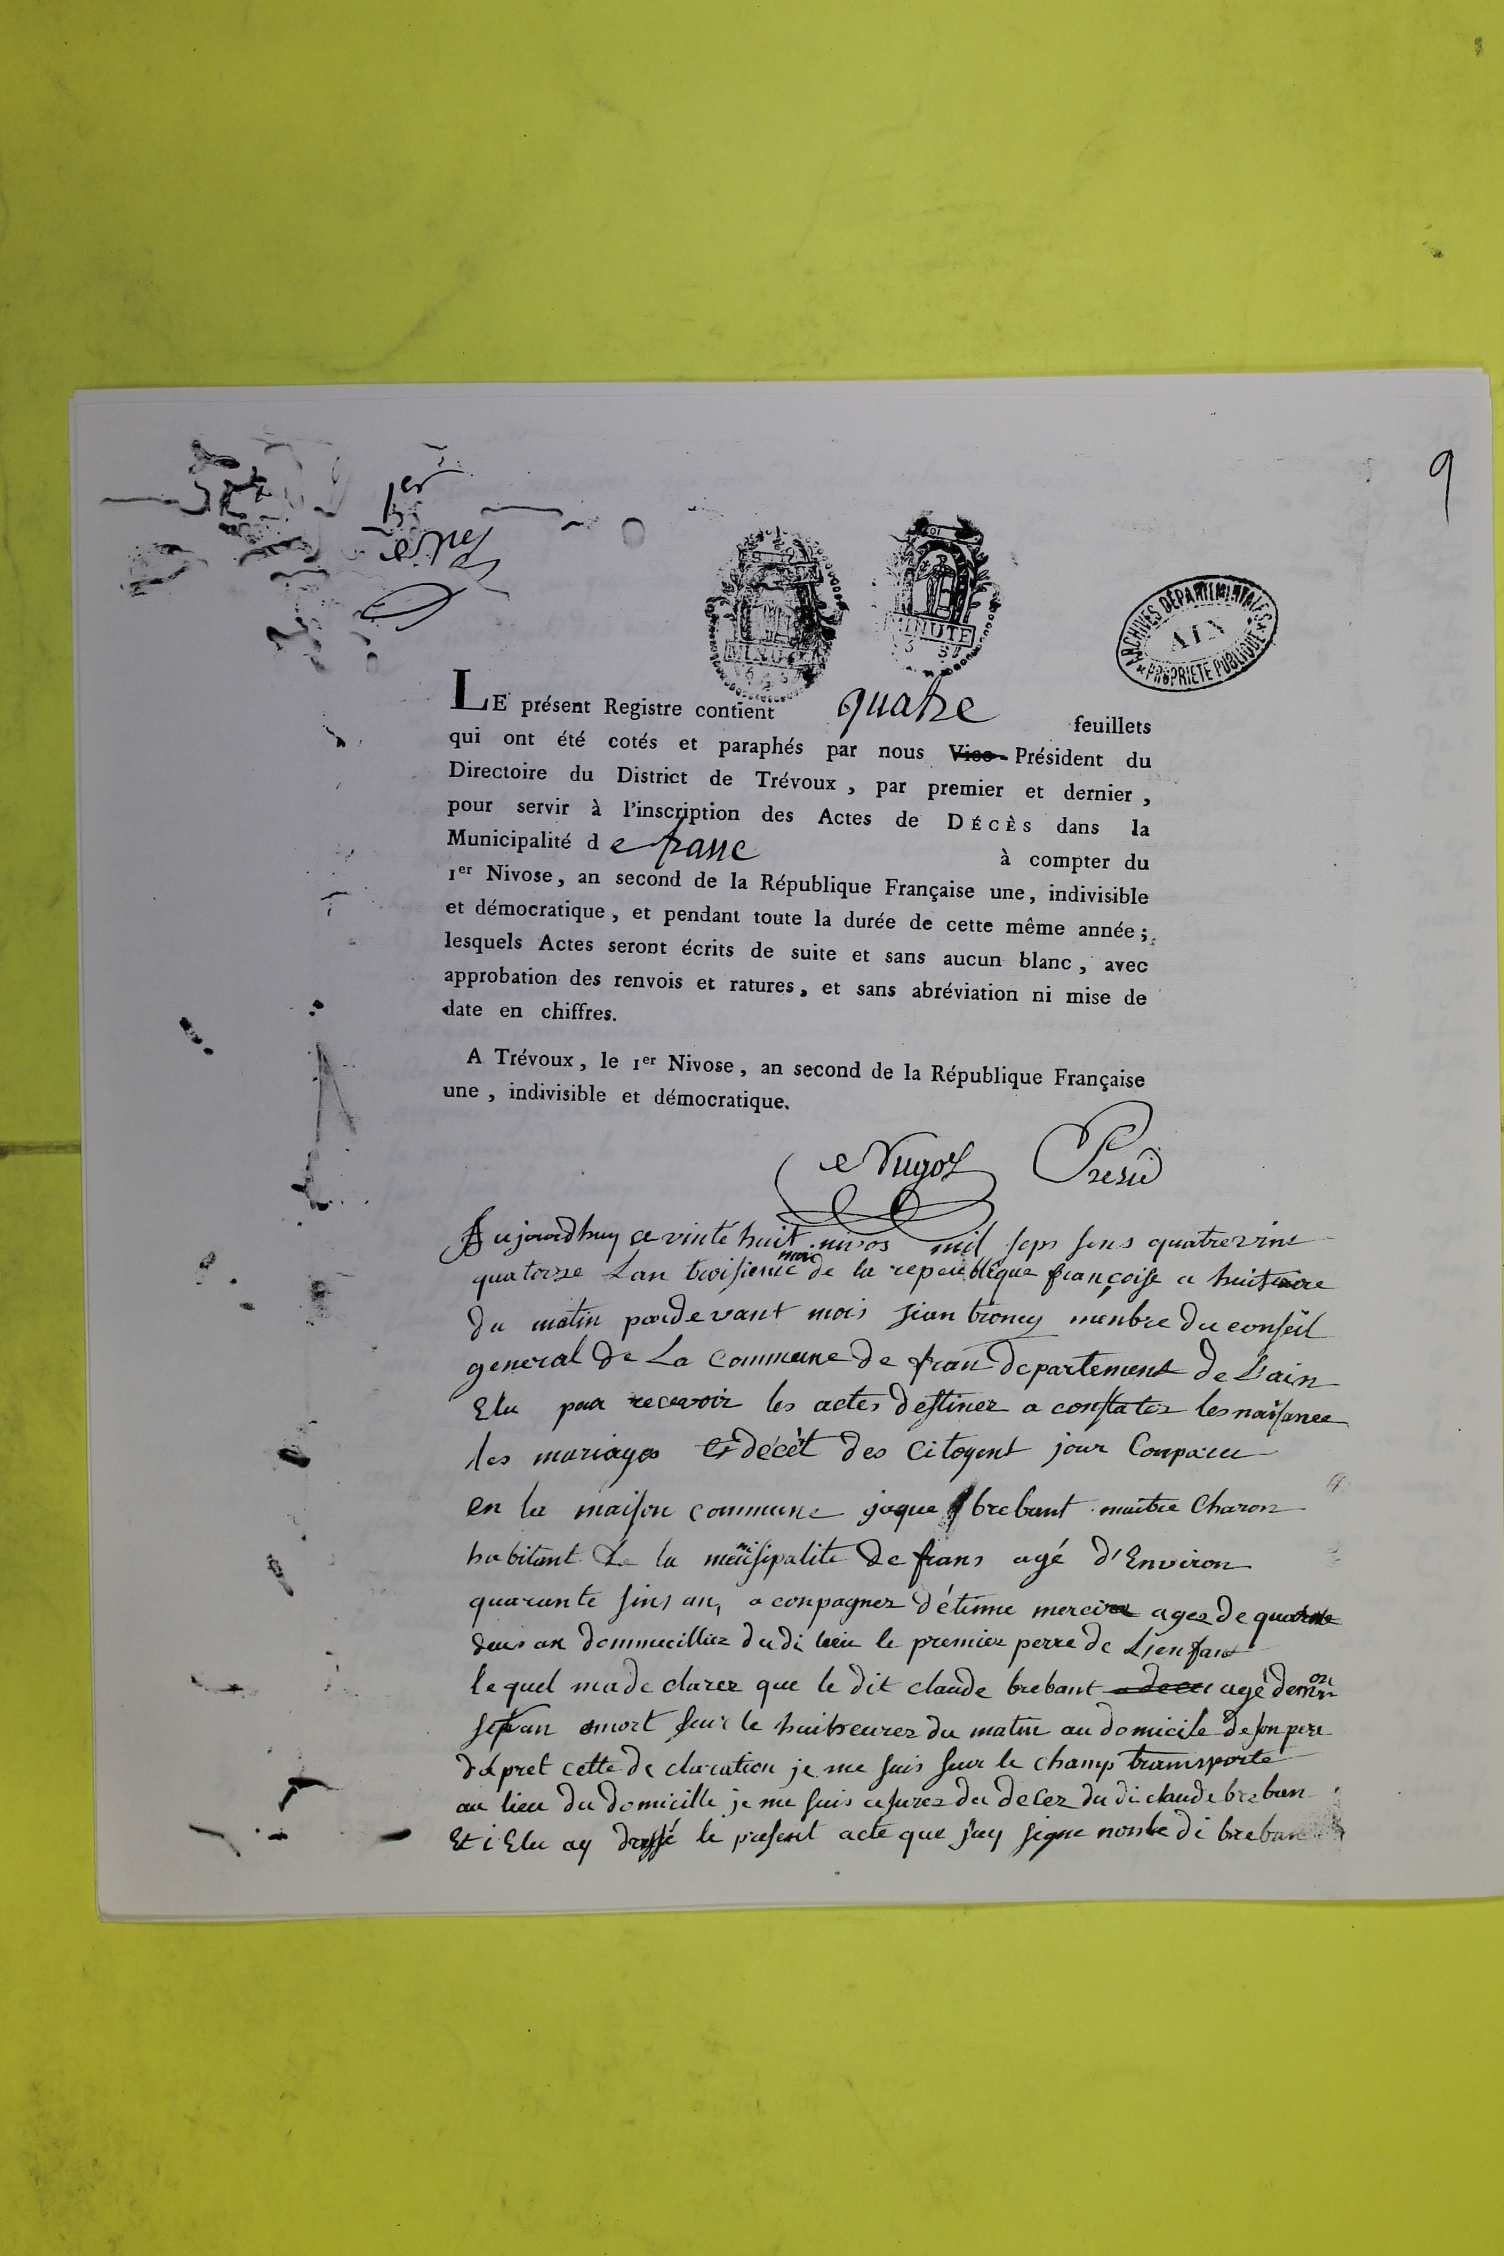 9
1er
MINUTE
MINUTE
ARCHIVES DÉPARTEMENTALES
AIN
PROPRIÉTÉ PUBLIQUE
LE présent Registre contient quatre feuillets
qui ont été cotés et paraphés par nous Vice-Président du
Directoire du District de Trévoux, par premier et dernier,
pour servir à l'inscription des Actes de DÉCÈS dans la
Municipalité de franc à compter du
1er Nivose, an second de la République Française une, indivisible
et démocratique, et pendant toute la durée de cette même année;
lesquels Actes seront écrits de suite et sans aucun blanc, avec
approbation des renvois et ratures, et sans abréviation ni mise de
date en chiffres.
A Trévoux, le 1er Nivose, an second de la République Française
une, indivisible et démocratique.
Presid
Aujourdhuy ce vinte huit nivos mil seps sens quatrevint
quatorze Lan troisieme mois de la republique françoise a huit
du matin pardevant mois jean troncy menbre du conseil
general de La Commune de fran departement de L'ain
Elu pour recevoir les actes destinez a constatez les naisance
les mariages et décèt des Citoyent jour Conparu
en la maison commune jaque brebant maitre Charon
habitant de la munisipalite de frans agé d'Environ
quarante sins an, a conpagnez d'étinne mercire agez de quarante
deus an dommicilliez dudi lieu le premiez perre de Lienfant
lequel ma de clarez que le dit claude brebant a dece agé demviron
set an emort sur le huit eurez du matin au domicile de son pere
d'apret cette de claration je me suis sur le champ transporte
au lieu du domicille je me suis asurez du decez du di claude breban
Et i Elu ay drassé le present acte que j'ay signe nonbe di breban